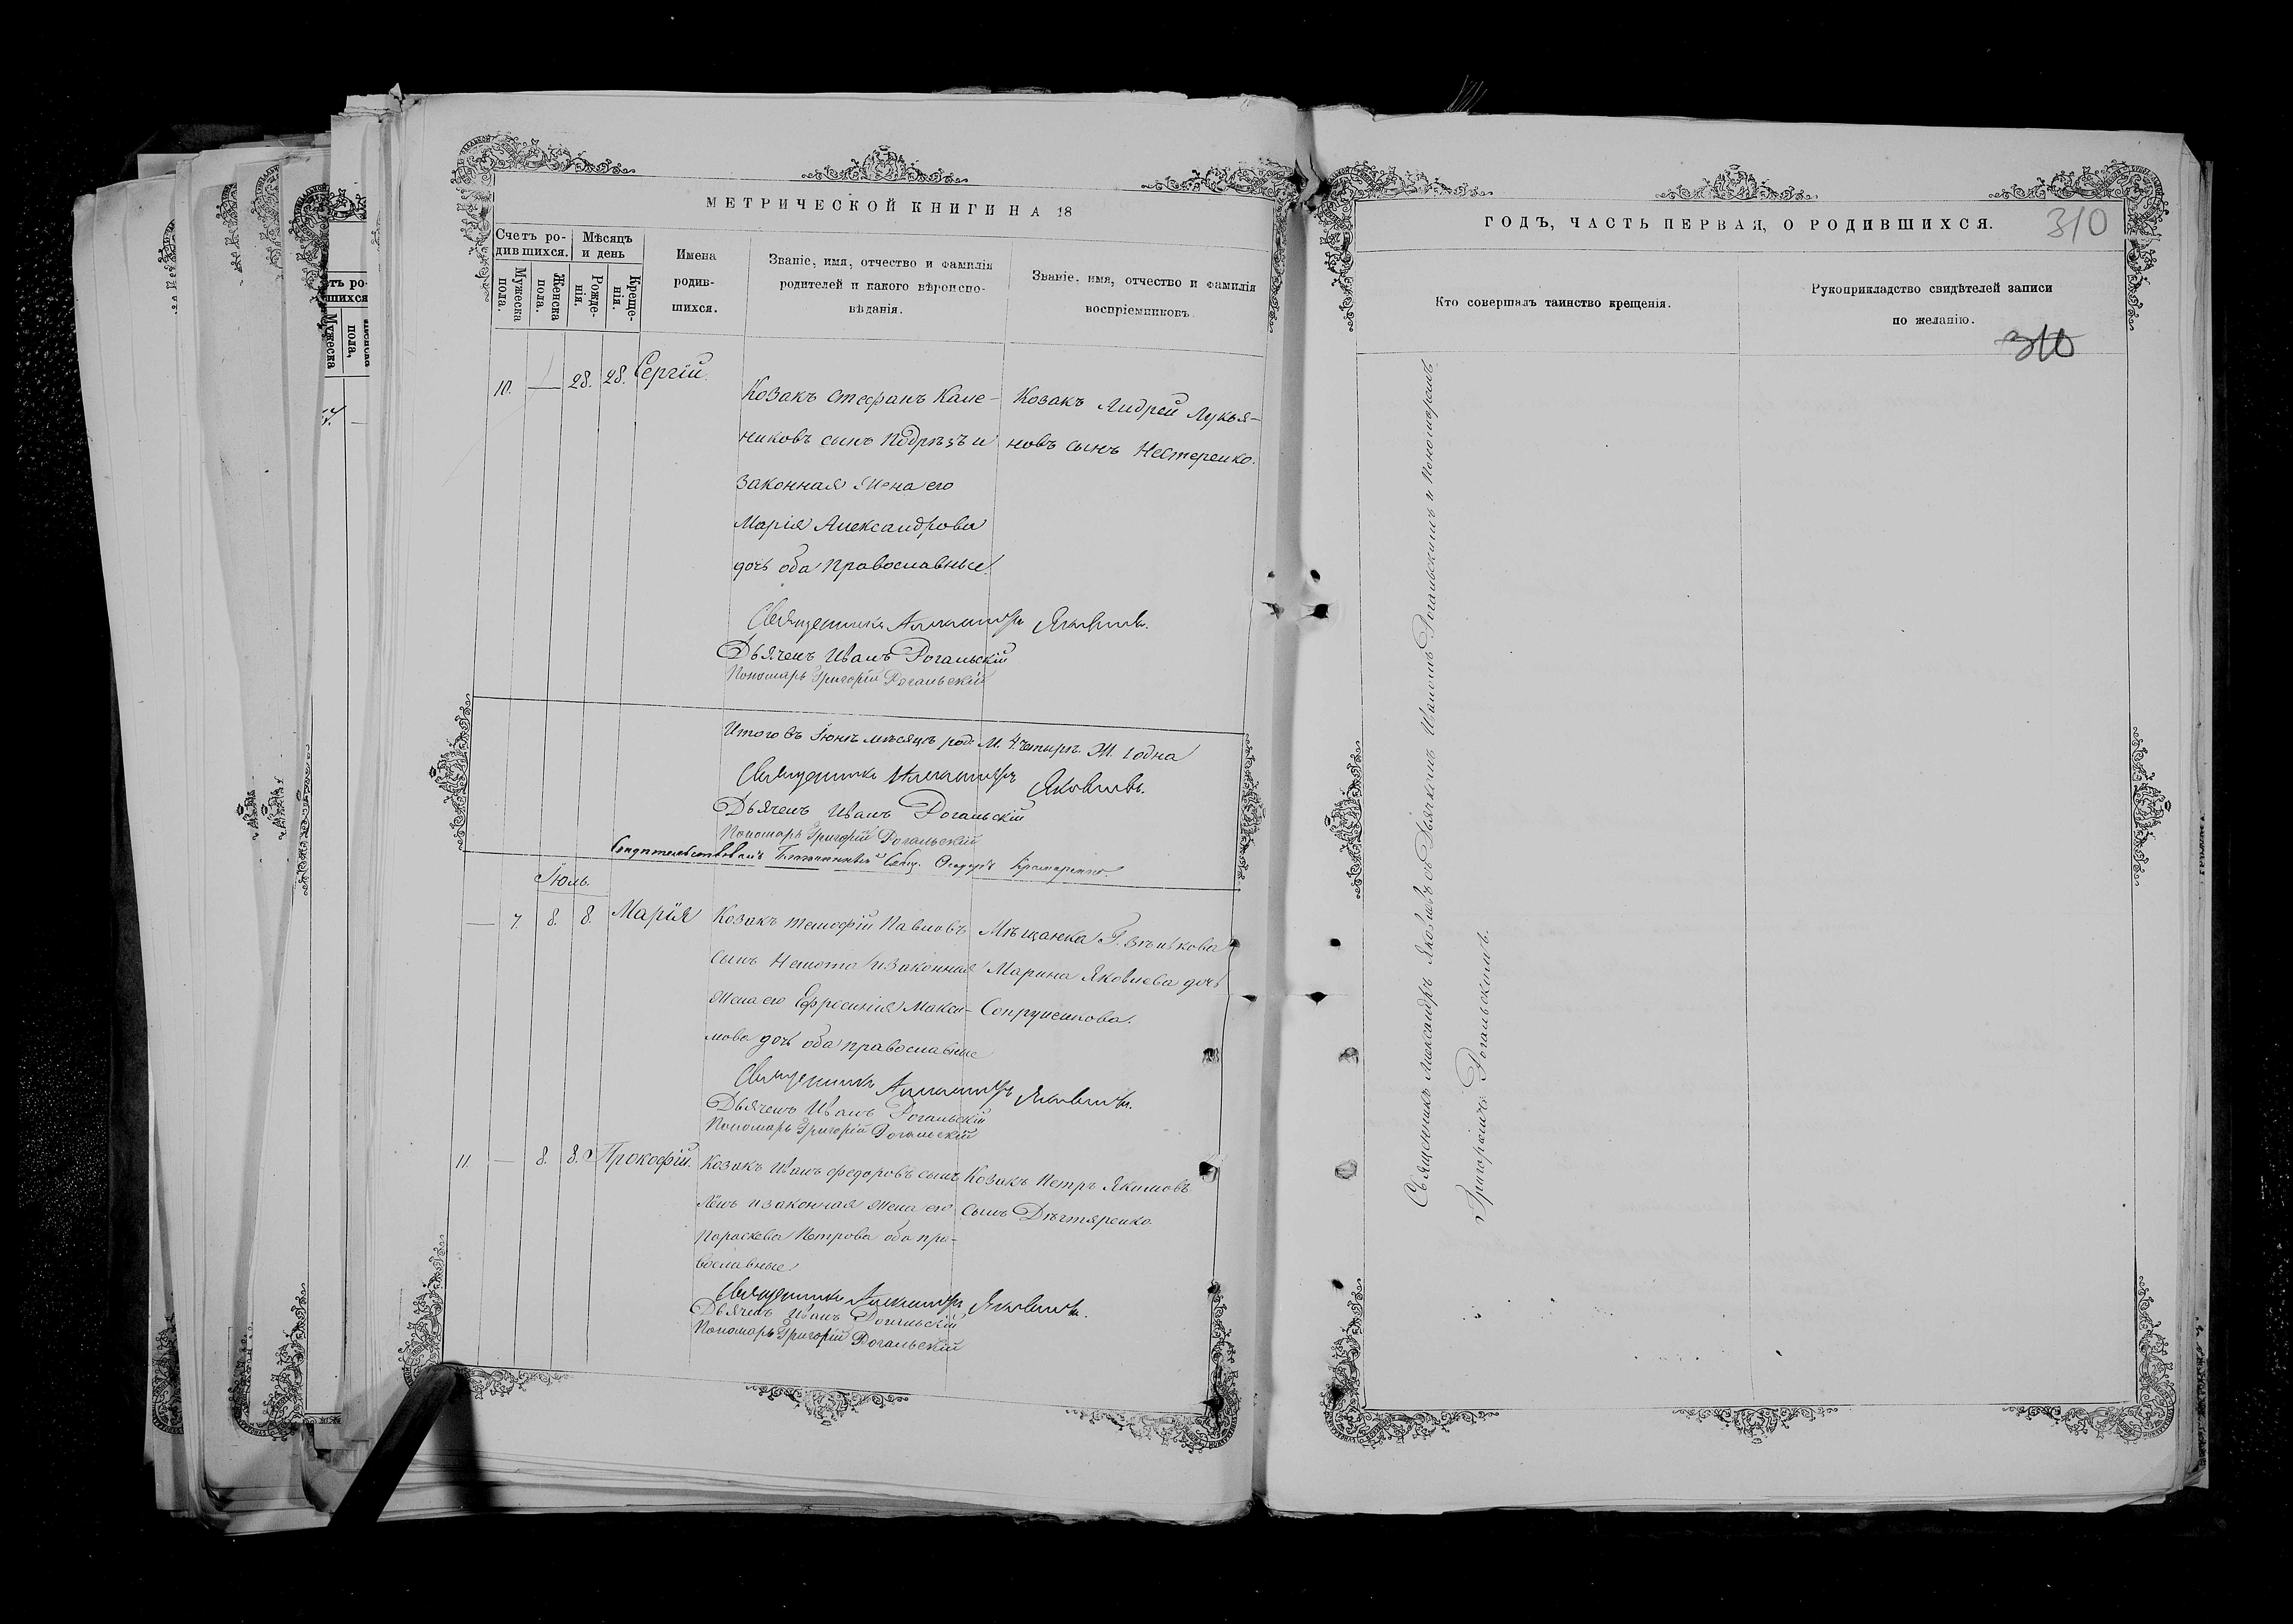 МЕТРИЧЕСКОЙ КНИГИ НА 18
Счетъ ро-
дившихся.
Мѣсяцъ
и день
Мужеска
пола.
Женска
пола.
Рожде-
нія.
Креще-
нія.
Имена
родив-
шихся.
Званіе, имя, отчество и фамилія
родителей и какого вѣроиспо-
вѣданія.
Званіе, имя, отчество и фамилія
воспріемниковъ.
10. — 28. 28. Сергій.
Козакъ Стефанъ Кале-
никовъ сынъ Подрѣзъ и
законная жена его
Марія Александрова
дочь оба Православные.
Козакъ Андрей Лукья-
новъ сынъ Нестеренко.
Священникъ Александръ Яковлевъ.
Дьячекъ Иванъ Рогальскій
Пономарь Григорій Рогальскій
Итого въ Іюнѣ мѣсяцѣ род. М. 4. четыре. Ж. 1 одна
Священникъ Александръ Яковлевъ.
Дьячекъ Иванъ Рогальскій
Пономарь Григорій Рогальскій
Свидѣтельствовалъ Свящ. Ѳеодоръ
Іюль.
— 7. 8. 8. Марія
Козакъ Тимофій Павловъ
сынъ Немота и законная
жена его Ефросинія Макси-
мова дочь оба православные
Мѣщанка Г. Зѣнькова
Марина Яковлева дочь
Сопрунenkова.
Священникъ Александръ Яковлевъ.
Дьячекъ Иванъ Рогальскій
Пономарь Григорій Рогальскій
11. — 8. 8. Прокофій.
Козакъ Иванъ Федоровъ сынъ
и законная жена его
Параскева Петрова оба пра-
вославные
Козакъ Петръ Якимовъ
сынъ Дѣгтяренко.
Священникъ Александръ Яковлевъ.
Дьячекъ Иванъ Рогальскій
Пономарь Григорій Рогальскій
ГОДЪ, ЧАСТЬ ПЕРВАЯ, О РОДИВШИХСЯ.
310
Кто совершалъ таинство крещенія.
Рукоприкладство свидѣтелей записи
по желанію.
310
Священникъ Александръ Яковлевъ съ Дьячкомъ Иваномъ Рогальскимъ и Пономаремъ
Григоріемъ Рогальскимъ.